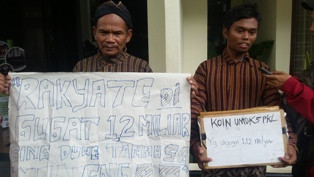 "RAKYATE DI
GUGAT 1,2 MILIAR
SING DUWE TANAH
KOIN UNTUK 5 PKL
Yg digugat 1,12 Milyar